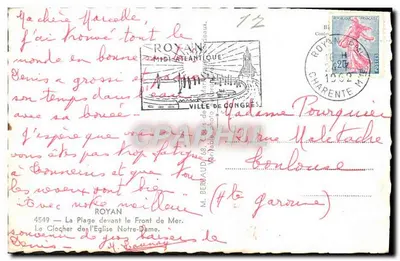 Ma chère Marcelle,
J'ai trouvé tout le
monde en bonne santé
Denis a grossi et passe
son temps dans l'eau
avec sa bouée
J'espère que
vous êtes pas trop fatiguée
à Tonneins et que tous
les neveux vont bien
Avec notre meilleur
souvenir de gros baisers de
Denis
ROYAN
4549 - La Plage devant le Front de Mer.
Le Clocher de l'Eglise Notre-Dame.
12
ROYAN
MIDI-ATLANTIQUE
VILLE DE CONGRES
ROYAN
1962
CHARENTE
0,20
Madame Pourquier
rue Maletache
Toulouse
(Hte Garonne)